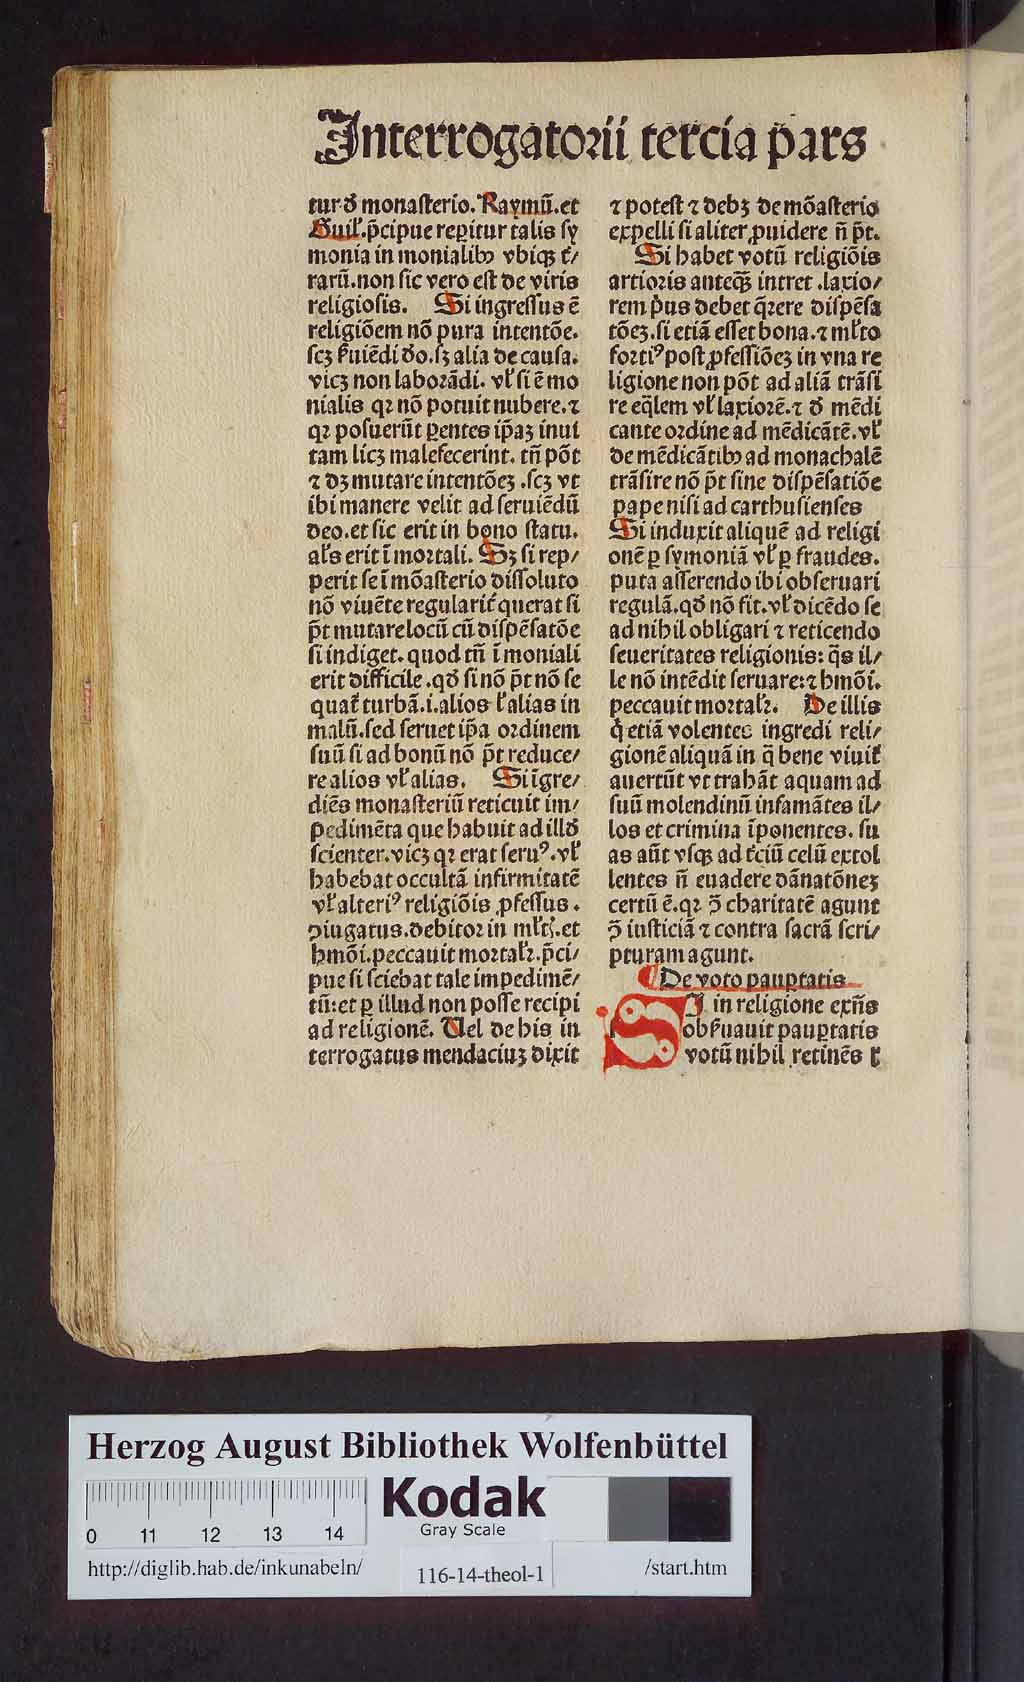 Interrogatorii tercia ꝑars
tur.đ monasterio. Raymū.et
Guil̉.p̄cipue reꝑitur talis sy
monia in monialibꝰ vbiqꝫ t̉/
rarū.non sic vero est de viris
religiosis. Si ingressus ē
religiōem nō pura intentōe.
scꝫ ẜuiēdi đo.sꝫ alia de causa.
vicꝫ non laborādi. vl̉ si ē mo
nialis qꝛ nō potuit nubere.⁊
qꝛ posuerūt ꝑentes ip̄aꝫ inui
tam licꝫ malefecerint. tn̄ pōt
⁊ dꝫ mutare intentōeꝫ .scꝫ vt
ibi manere velit ad seruiēdū
deo.et sic erit in bono statu.
al̉s erit ī mortali. Sꝫ si rep/
perit se ī mōasterio dissoluto
nō viuēte regularit̉ querat si
p̄t mutare locū cū dispēsatōe
si indiget. quod tn̄ ī moniali
erit difficile .qđ si nō p̄t nō se
quat̉ turbā.i.alios l̉ alias in
malū.sed seruet ip̄a ordinem
suū si ad bonū nō p̄t reduce/
re alios vl̉ alias. Si īgre/
diēs monasteriū reticuit im/
pedimēta que habuit ad illđ
scienter.vicꝫ qꝛ erat seruꝰ.vl̉
habebat occultā infirmitatē
vl̉ alteriꝰ religiōis ꝓfessus .
ꝯiugatus.debitor in ml̉tꝭ.et
hmōi.peccauit mortal̉r.p̄ci/
pue si sciebat tale impedimē/
tū:et ꝑ illud non posse recipi
ad religionē. Uel de his in
terrogatus mendaciuꝫ dixit
⁊ potest ⁊ debꝫ de mōasterio
expelli si aliter ꝓuidere n̄ p̄t.
Si habet votū religiōis
artioris anteqꝫ̄ intret .laxio/
rem p̉us debet q̄rere dispēsa
tōeꝫ.si etiā esset bona.⁊ ml̉to
fortiꝰ post ꝓfessiōeꝫ in vna re
ligione non pōt ad aliā trāsi
re eq̄lem vl̉ laxiorē.⁊ đ mēdi
cante ordine ad mēdicātē.vl̉
de mēdicātibꝰ ad monachalē
trāsire nō p̄t sine dispēsatiōe
pape nisi ad carthusienses
Si induxit aliquē ad religi
onē ꝑ symoniā vl̉ ꝑ fraudes.
puta asserendo ibi obseruari
regulā.qđ nō fit.vl̉ dicēdo se
ad nihil obligari ⁊ reticendo
seueritates religionis: q̄s il/
le nō intēdit seruare:⁊ hmōi.
peccauit mortal̉r. De illis
q̉ etiā volentes ingredi reli/
gionē aliquā in q̄ bene viuit̉
auertūt vt trahāt aquam ad
suū molendinū infamātes il/
los et crimina īponentes. su
as aūt vsqꝫ ad t̉ciū celū extol
lentes n̄ euadere dānatōneꝫ
certū ē.qꝛ ꝯ̄ charitatē agunt
ꝯ̄ iusticiā ⁊ contra sacrā scri/
pturam agunt.
¶ De voto pauꝑtatis
SI in religione exn̄s
obẜuauit pauꝑtatis
votū nihil retinēs ẜ
Herzog August Bibliothek Wolfenbüttel
Kodak
Gray Scale
0 11 12 13 14
http://diglib.hab.de/inkunabeln/ 116-14-theol-1 /start.htm